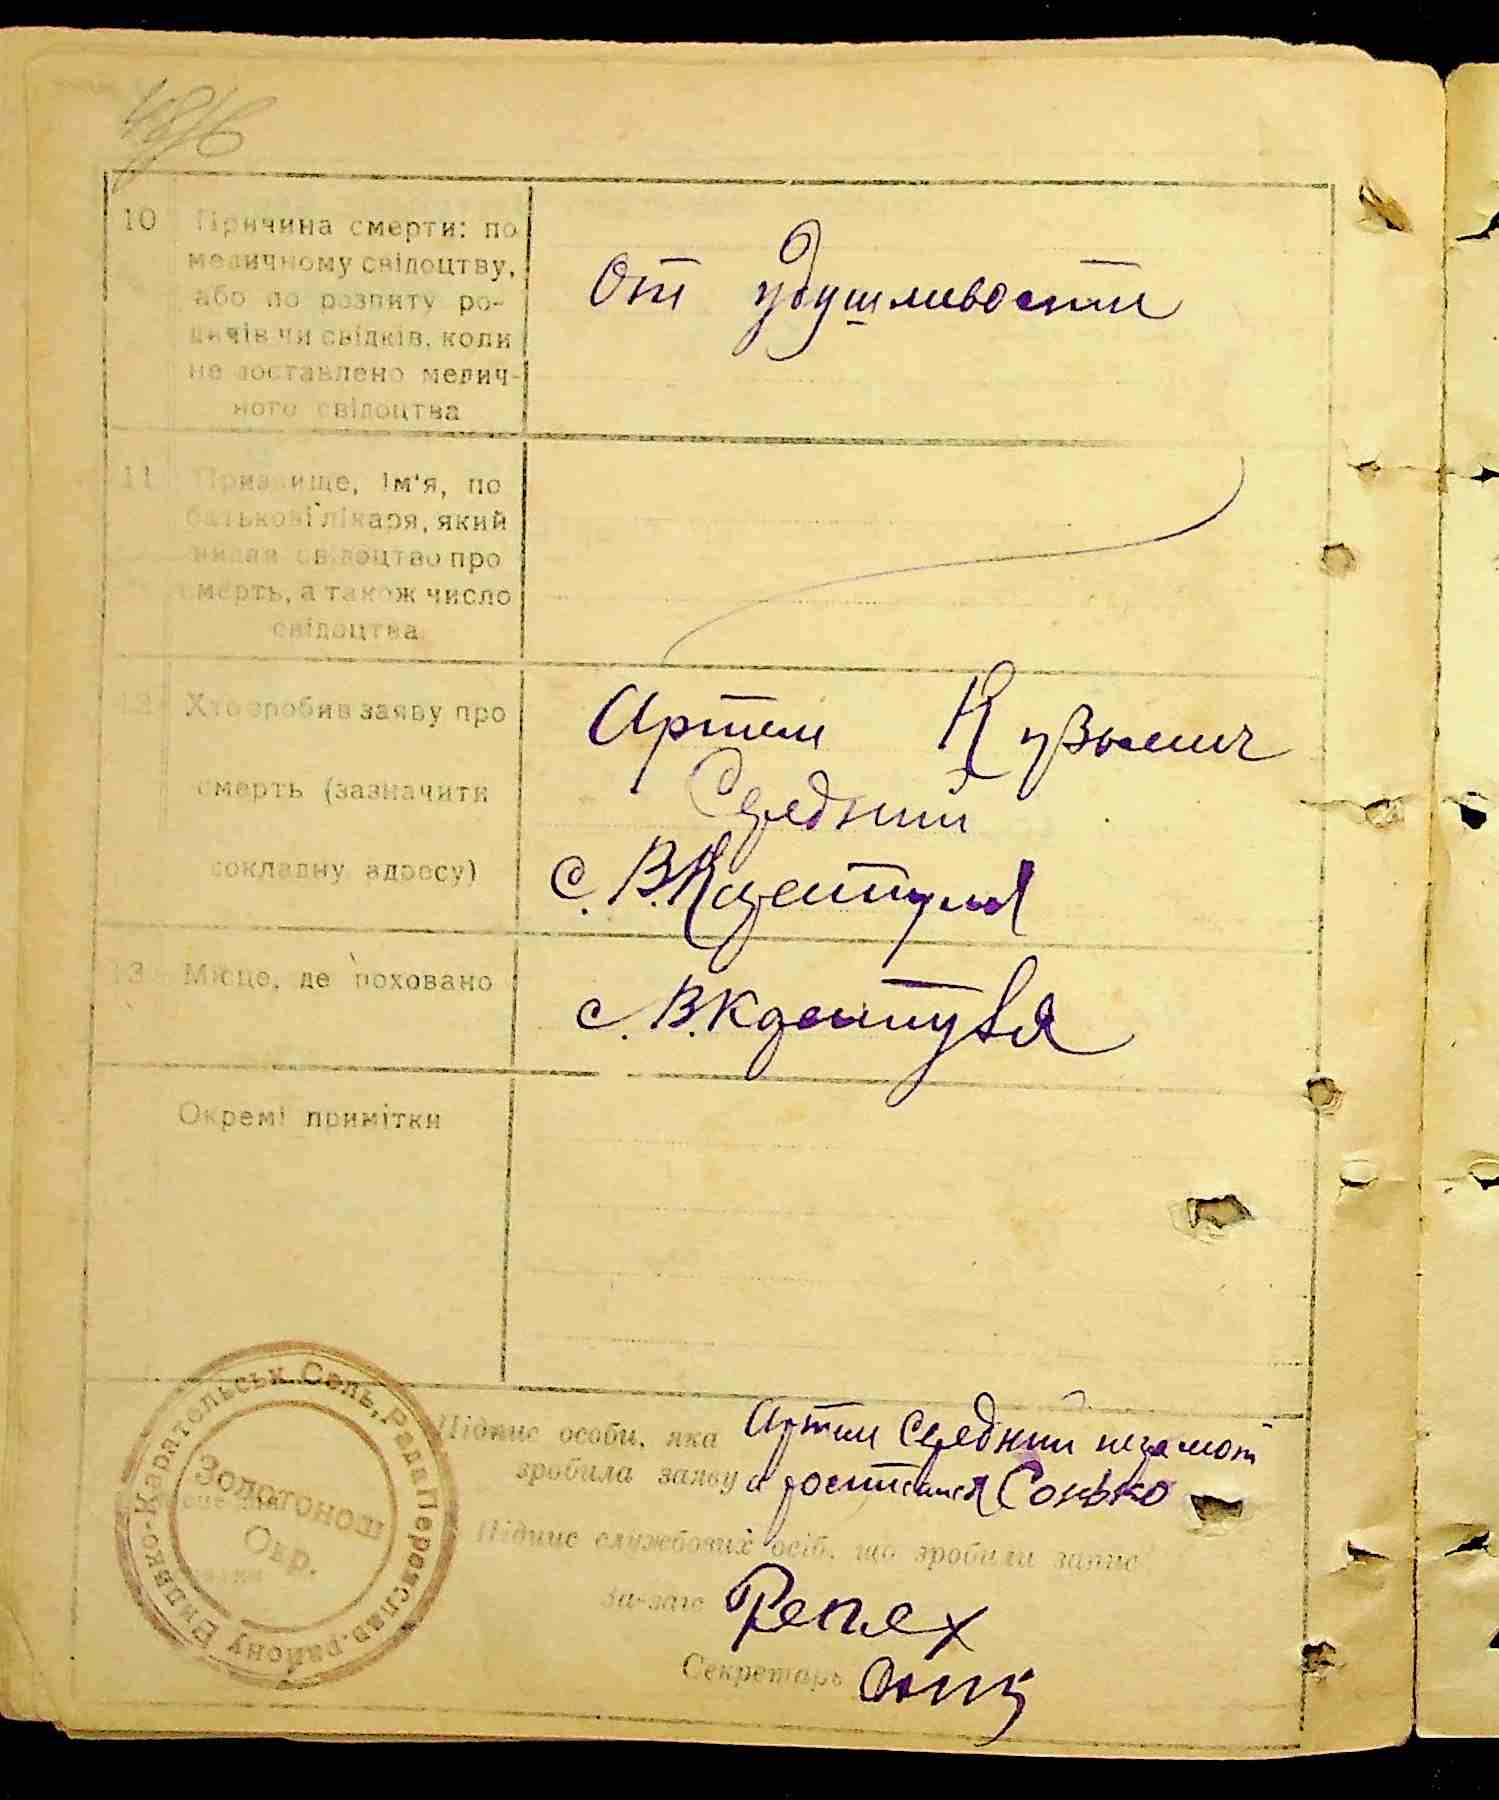 10 Причина смерти: по
медичному свідоцтву,
або по розпиту ро-
дичів чи свідків, коли
не доставлено медич-
ного свідоцтва
От удушливости
11 Призвище, Ім'я, по
батькові лікаря, який
видав свідоцтво про
смерть, а також число
свідоцтва
12 Хто зробив заяву про
смерть (зазначити
докладну адресу)
Артем Кузьмич
Середний
с. В.
13 Місце, де поховано
с. В.
Окремі примітки
Підпис особи, яка Артем Середний
зробила заяву а Сонько
Підпис службових осіб, що зробили запис
За-загс Репех
Секретарь
Видько-Каратольськ. Сель, Рада Переяслав. району
Золотонош
Окр.